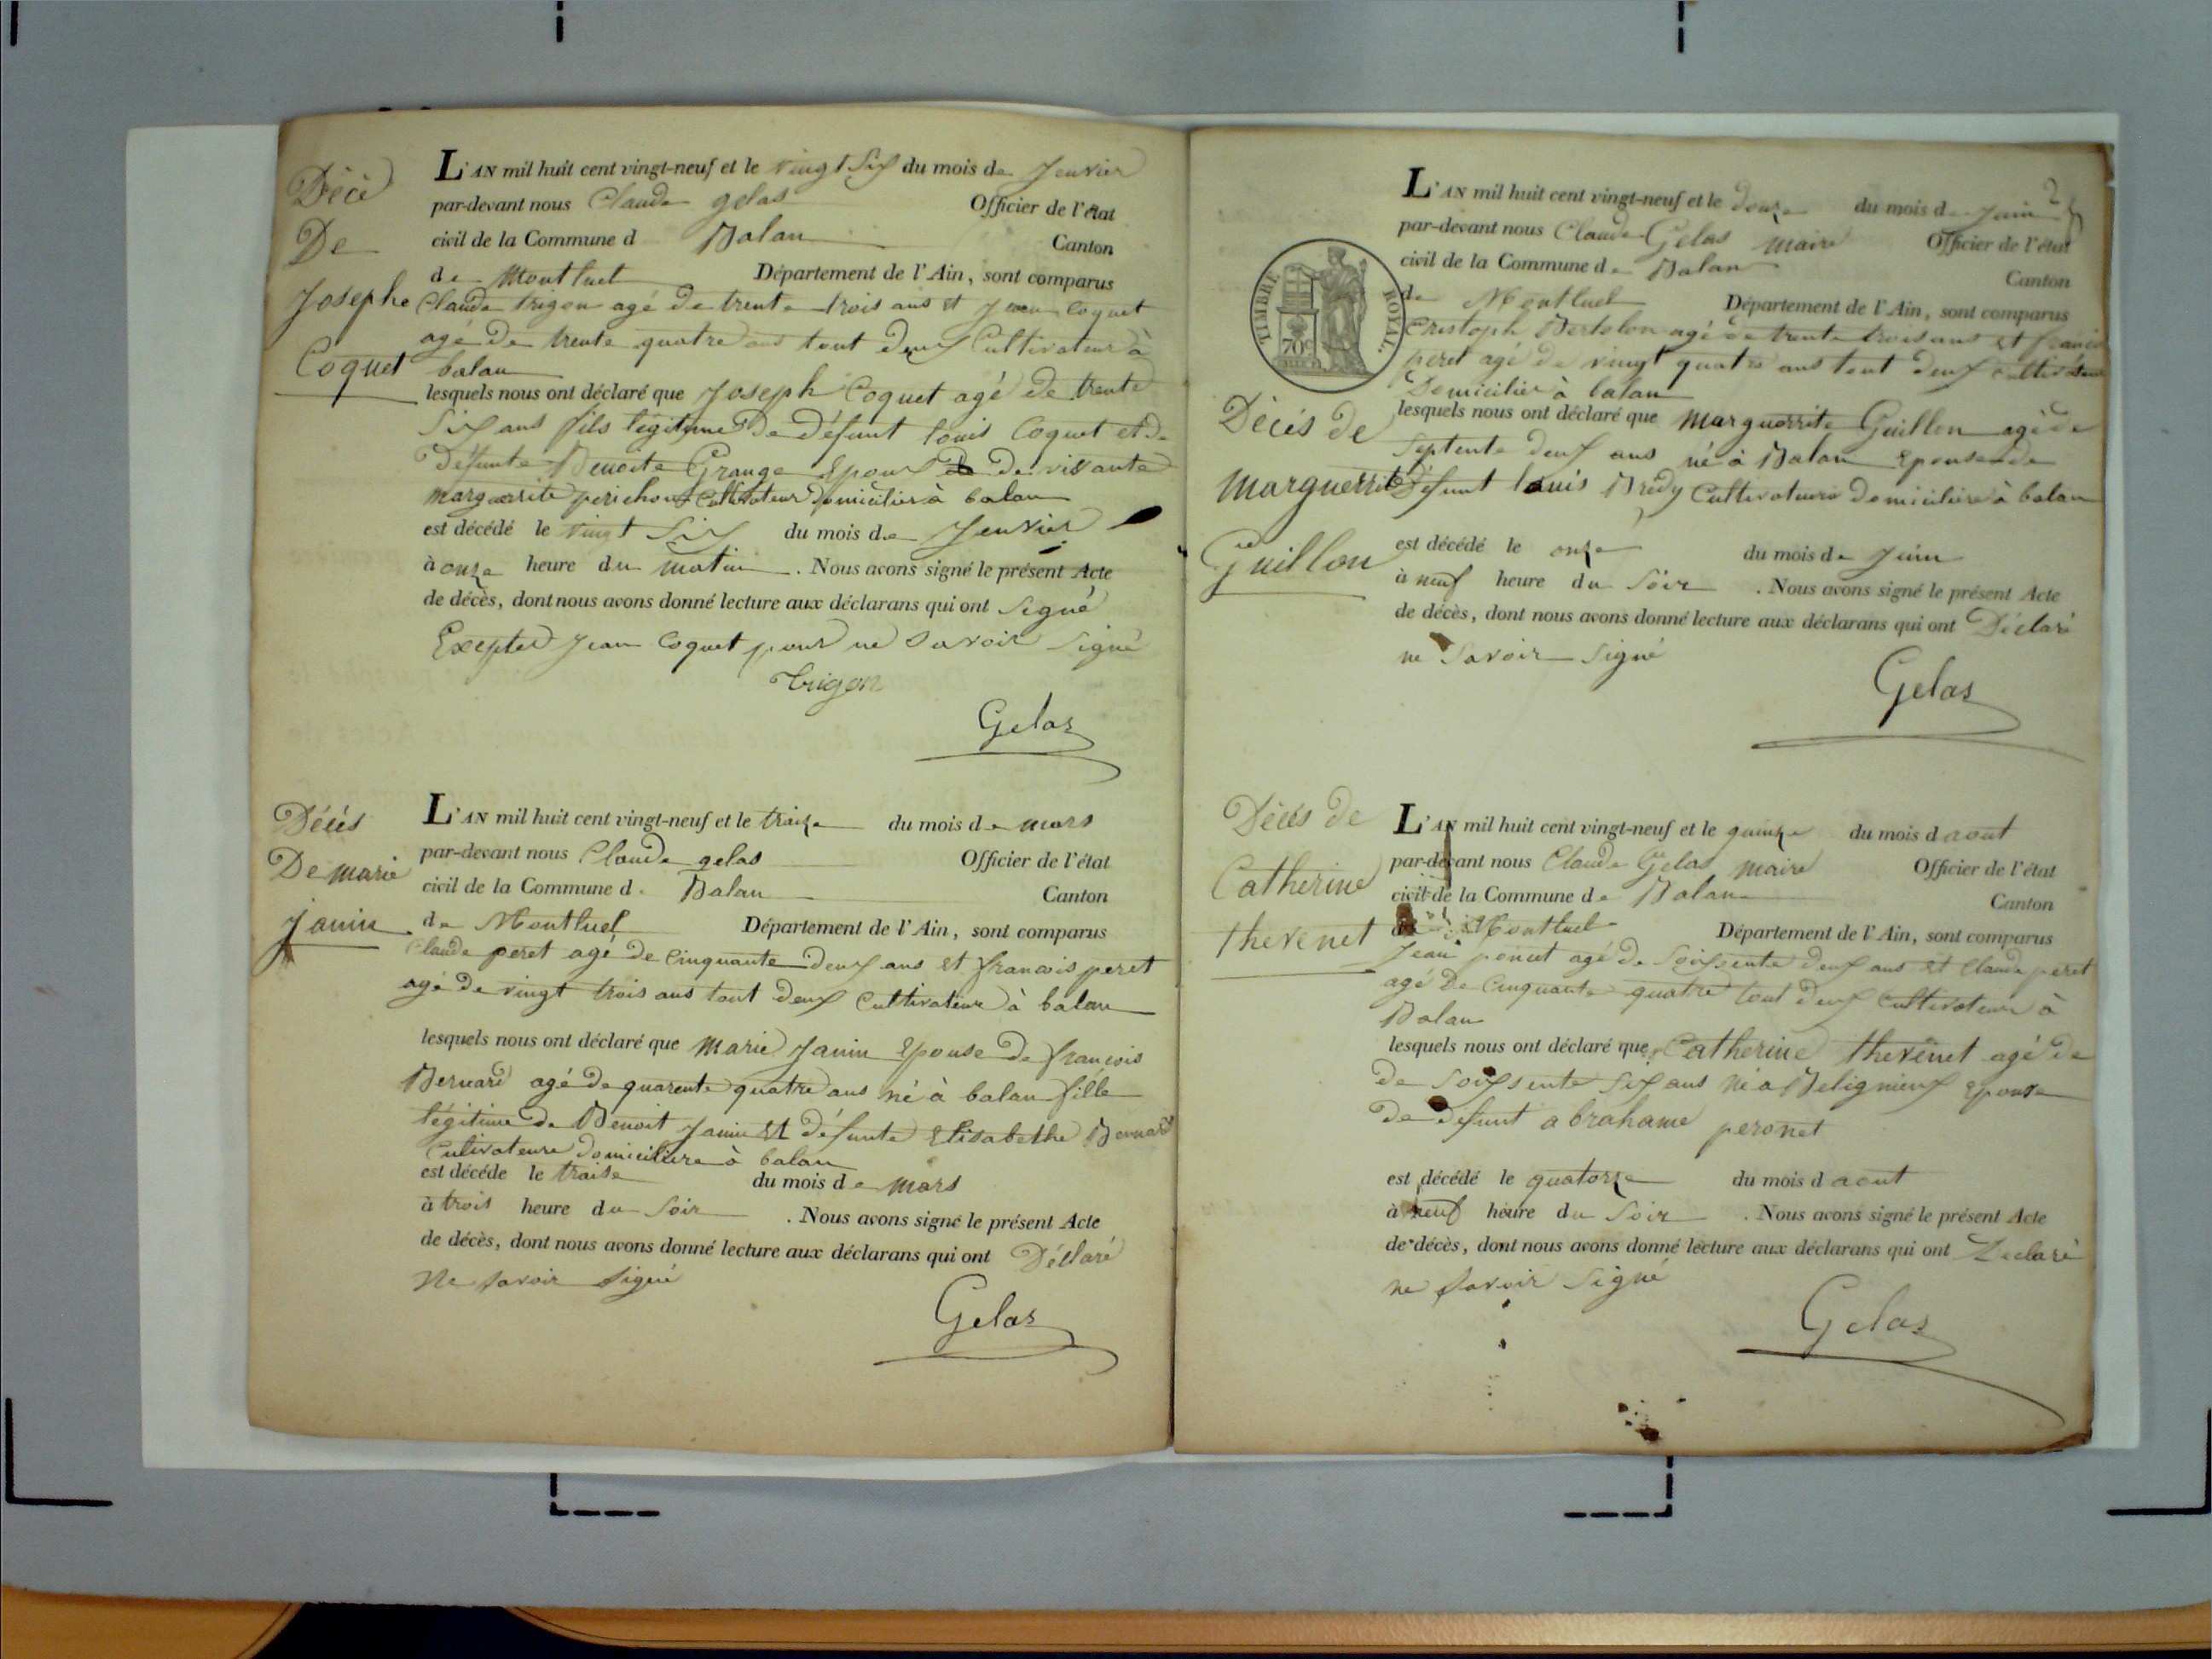 Décè
De
Josephe
Coquet
L'AN mil huit cent vingt-neuf et le vingt Six du mois de Jenvier
par-devant nous Claude gelas Officier de l'état
civil de la Commune d Balan Canton
de Montluel Département de l'Ain, sont comparus
Claude trigon agé de trente trois ans et Jean Coquet
agé De trente quatre ans tout deux Cultivateur à
balan
lesquels nous ont déclaré que Joseph Coquet agé de trente
Six ans fils légitime De Défunt louis Coquet et de
Défunte Benoite Grange Epoux De vivante
margarite perichon Cultivateur Domicilier à balan
est décédé le vingt Six du mois de Jenvier
à onze heure du matin . Nous avons signé le présent Acte
de décès, dont nous avons donné lecture aux déclarans qui ont Signé
Excepter Jean Coquet pour ne Savoir Signé
Trigon
Gelas
Décés
De marie
Janin
L'AN mil huit cent vingt-neuf et le traize du mois de mars
par-devant nous Claude gelas Officier de l'état
civil de la Commune d. Balan Canton
de Montluel Département de l'Ain, sont comparus
Claude peret agé de Cinquante deux ans et francois peret
agé de vingt trois ans tout deux Cultivateur à balan
lesquels nous ont déclaré que Marie Janin Epouse De francois
Bernard agé de quarente quatre ans né à balan fille
légitime de Benoit Janin et défunte Elisabethe Bernard
Cultivateure Domiciliere à balan
est décédé le traise du mois de mars
à trois heure du Soir . Nous avons signé le présent Acte
de décès, dont nous avons donné lecture aux déclarans qui ont Déclaré
Ne Savoir Signé
Gelas
2
L'AN mil huit cent vingt-neuf et le douze du mois de Juin
par-devant nous Claude Gelas maire Officier de l'état
civil de la Commune de Balan Canton
de Montluel Département de l'Ain, sont comparus
TIMBRE ROYAL.
70c
Cristoph Bertolon agé de trente trois ans et francois
peret agé De vingt quatre ans tout deux Cultivateur
Domicilier à balan
Décés de
Marguerrite
Guillon
lesquels nous ont déclaré que Marguerrite Guillon agé de
Septente deux ans né à Balan Epouse de
Défunt louis Bredy Cultivateure domiciliere à balan
est décédé le onze du mois de Juin
à neuf heure du Soir . Nous avons signé le présent Acte
de décès, dont nous avons donné lecture aux déclarans qui ont Déclaré
ne Savoir Signé
Gelas
Décés De
Catherine
thevenet
L'AN mil huit cent vingt-neuf et le quinze du mois d aout
par-devant nous Claude Gelas maire Officier de l'état
civil de la Commune de Balan Canton
de Montluel Département de l'Ain, sont comparus
Jean poncet agé de Soissente deux ans et Claude peret
agé De Cinquante quatre tout deux Cultivateur à
Balan
lesquels nous ont déclaré que Catherine thevenet agé de
de Soissente Six ans né a Belignieux Epouse
de défunt abrahame peronet
est décédé le quatorze du mois d aout
à neuf heure du Soir . Nous avons signé le présent Acte
de décès, dont nous avons donné lecture aux déclarans qui ont Declaré
ne Savoir Signé
Gelas